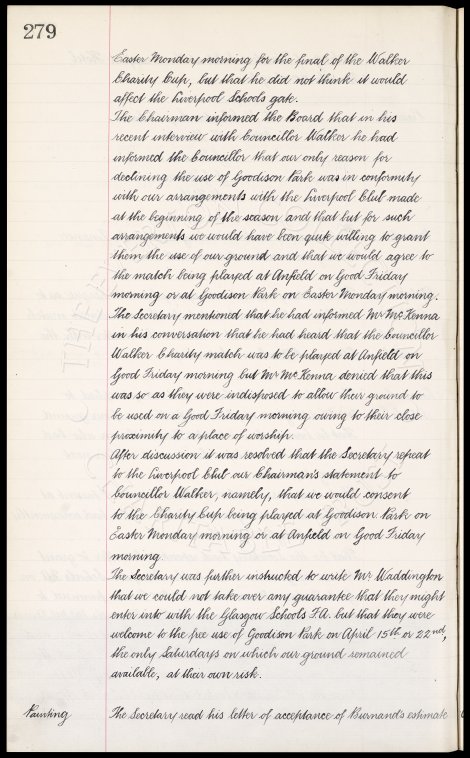 279
Easter Monday morning for the final of the Walker
Charity Cup, but that he did not think it would
affect the Liverpool Schools gate.
The Chairman informed the Board that in his
recent interview with Councillor Walker he had
informed the Councillor that our only reason for
declining the use of Goodison Park was in conformity
with our arrangements with the Liverpool Club made
at the beginning of the season and that but for such
arrangements we would have been quite willing to grant
them the use of our ground and that we would agree to
the match being played at Anfield on Good Friday
morning or at Goodison Park on Easter Monday morning.
The Secretary mentioned that he had informed Mr McKenna
in his conversation that he had heard that the Councillor
Walker Charity match was to be played at Anfield on
Good Friday morning but Mr McKenna denied that this
was so as they were indisposed to allow their ground to
be used on a Good Friday morning owing to their close
proximity to a place of worship.
After discussion it was resolved that the Secretary repeat
to the Liverpool Club our Chairman's statement to
Councillor Walker, namely, that we would consent
to the Charity Cup being played at Goodison Park on
Easter Monday morning or at Anfield on Good Friday
morning.
The Secretary was further instructed to write Mr Waddington
that we could not take over any guarantee that they might
enter into with the Glasgow Schools F.A. but that they were
welcome to the free use of Goodison Park on April 15th or 22nd,
the only Saturdays on which our ground remained
available, at their own risk.
Painting The Secretary read his letter of acceptance of Burnand's estimate